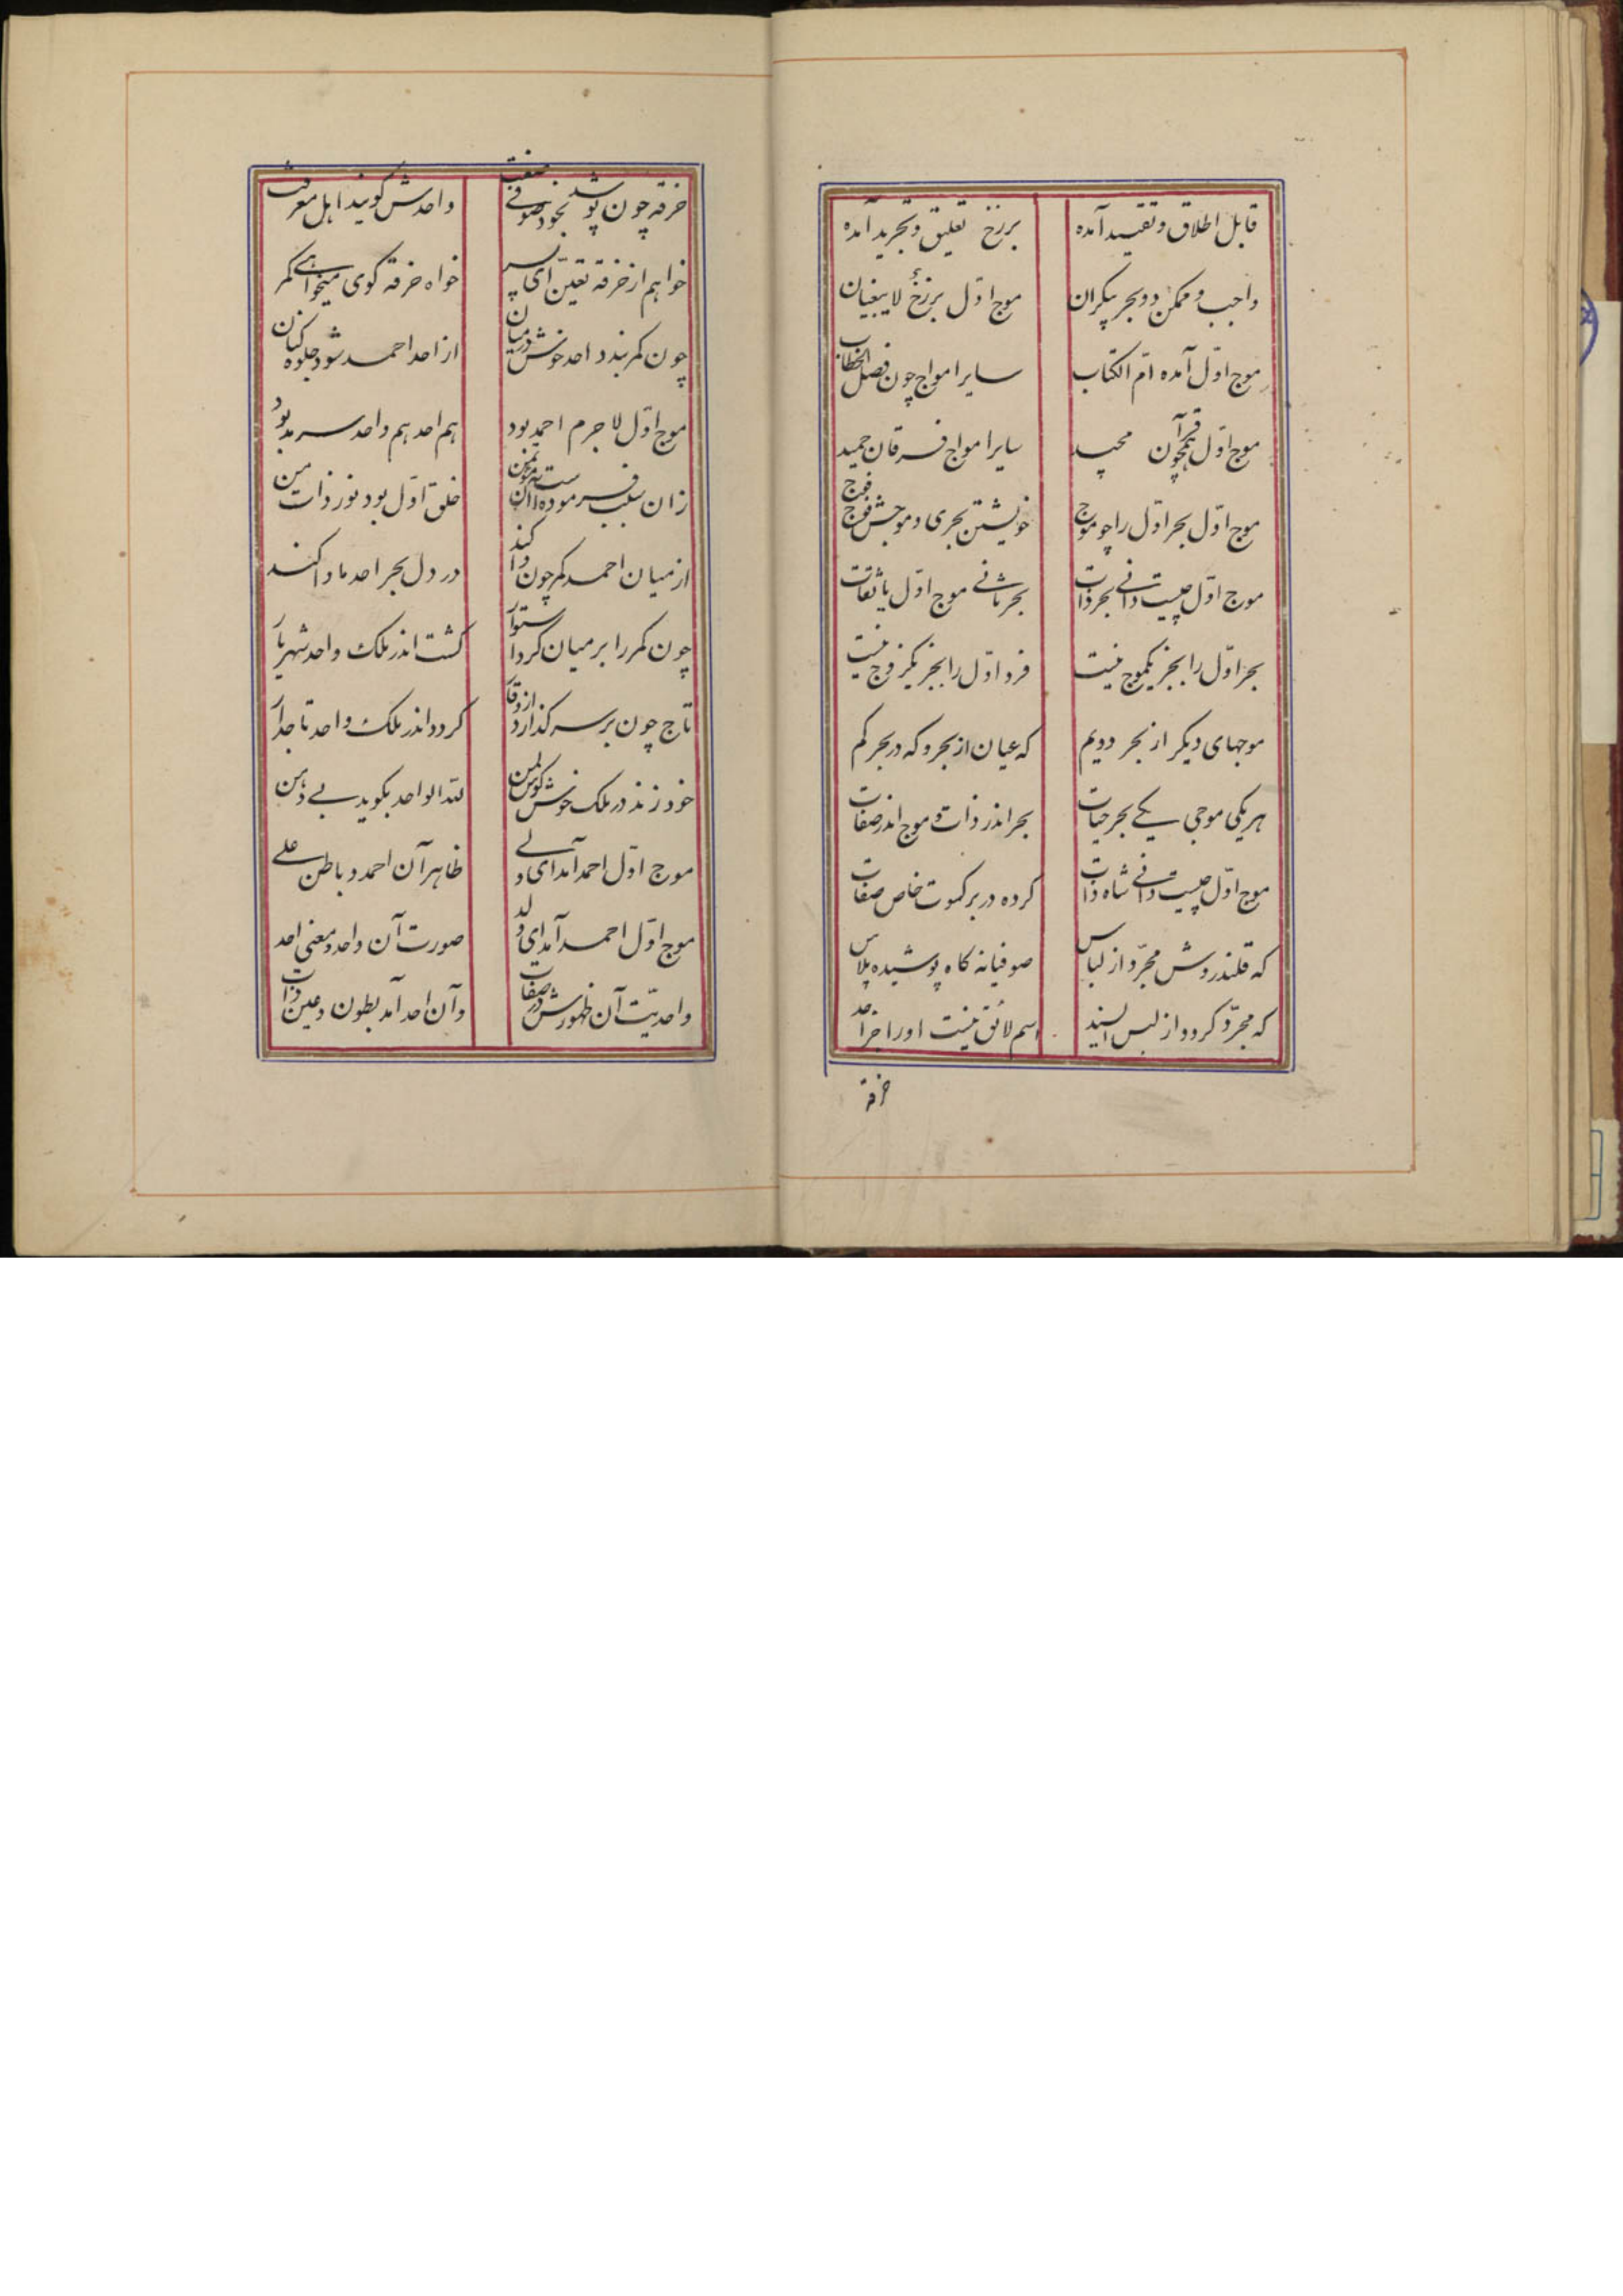 قابل اطلاق و تقیید آمده برزخ تعلیق و تجرید آمده
واجب و ممکن دو بحر بیکران موج اوّل برزخ لایبغیان
موج اوّل آمده امّ الکتاب سایر امواج چون فصل الخطاب
موج اوّل همچون قرآن مجید سایر امواج فرقان حمید
موج اوّل بحر اوّل را چو موج خویشتن بحری و موجش فوج فوج
موج اوّل چیست دانی بحر ذات بحر ثانی موج اوّل با ثقات
بحر اوّل را بجز یکموج نیست فرد اوّل را بجز یکزوج نیست
موجهای دیگر از بحر دویم که عیان از بحر و که در بحر کم
هر یکی موجی یکی بحر حیات بحر اندر ذات و موج اندر صفات
موج اوّل چیست دانی شاه ذات کرده در بر کسوت خاص صفات
که قلندروش مجرّد از لباس صوفیانه کاه پوشیده پلاس
که مجرّد کردد از لبس اسم لائق نیست او را جز احد
خرقه
خرقه چون پوشد بخود صوفی صفت واحدش کویند اهل معرفت
خواهم از خرقه تعیّن ای پسر خواه خرقه کوی میخواهی کمر
چون کمر بندد احد خوش در میان از احد احمد شود جلوه کنان
موج اوّل لا جرم احمد بود هم احد هم واحد سرمد بود
زان سبب فرموده است خلق اوّل بود نور ذات من
از میان احمد کمر چون وا کند در دل بحر احد ماوا کند
چون کمر را بر میان کرد استوار کشت اندر ملک واحد شهریار
تاج چون بر سر کذارد از وقار کردد اندر ملک واحد تاجدار
خود زند در ملک خوش کوس لمن للّه الواحد بکوید بی دهن
موج اوّل احمد آمد ای ولی ظاهر آن احمد و باطن علی
موج اوّل احمد آمد ای ولد صورت آن واحد و معنی احد
واحدیّت آن ظهورش در صفات وآن احد آمد بطون و عین ذات